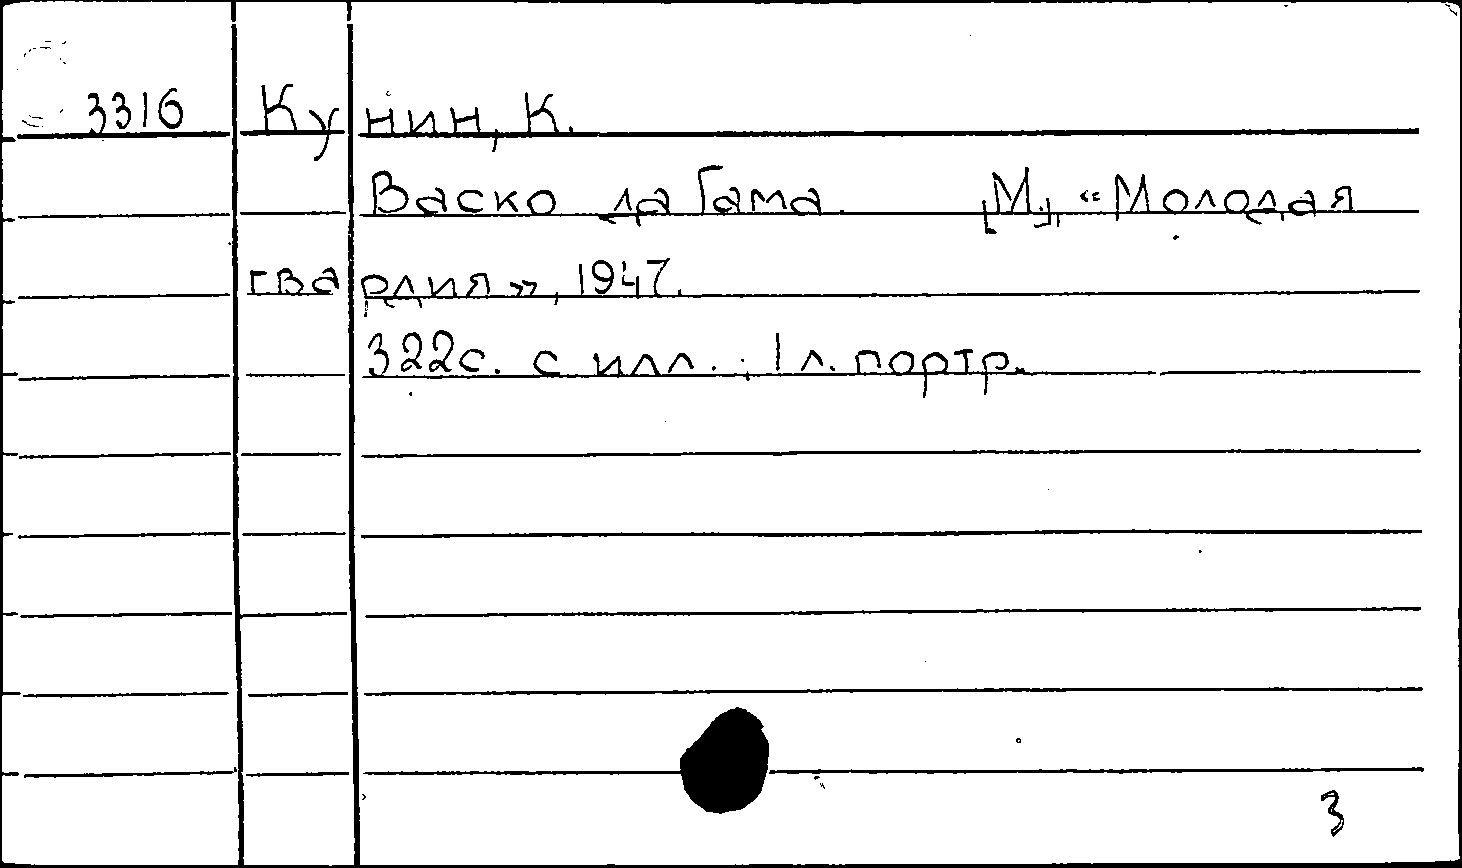 3316 Кунин, К.
Васко да Гама. [М.], «Молодая
гвардия», 1947.
322с. с илл.; 1 л. портр.
3